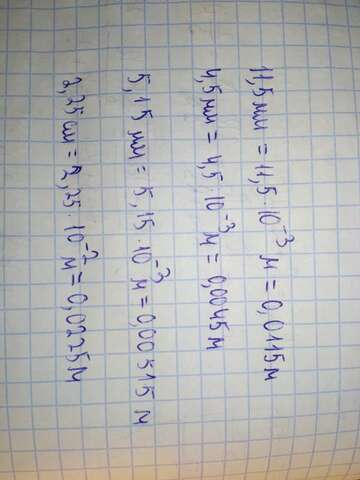 11,5 мм = 11,5 · 10⁻³ м = 0,0115 м
4,5 мм = 4,5 · 10⁻³ м = 0,0045 м
5,15 мм = 5,15 · 10⁻³ = 0,00515 м
2,25 см = 2,25 · 10⁻² м = 0,0225 м